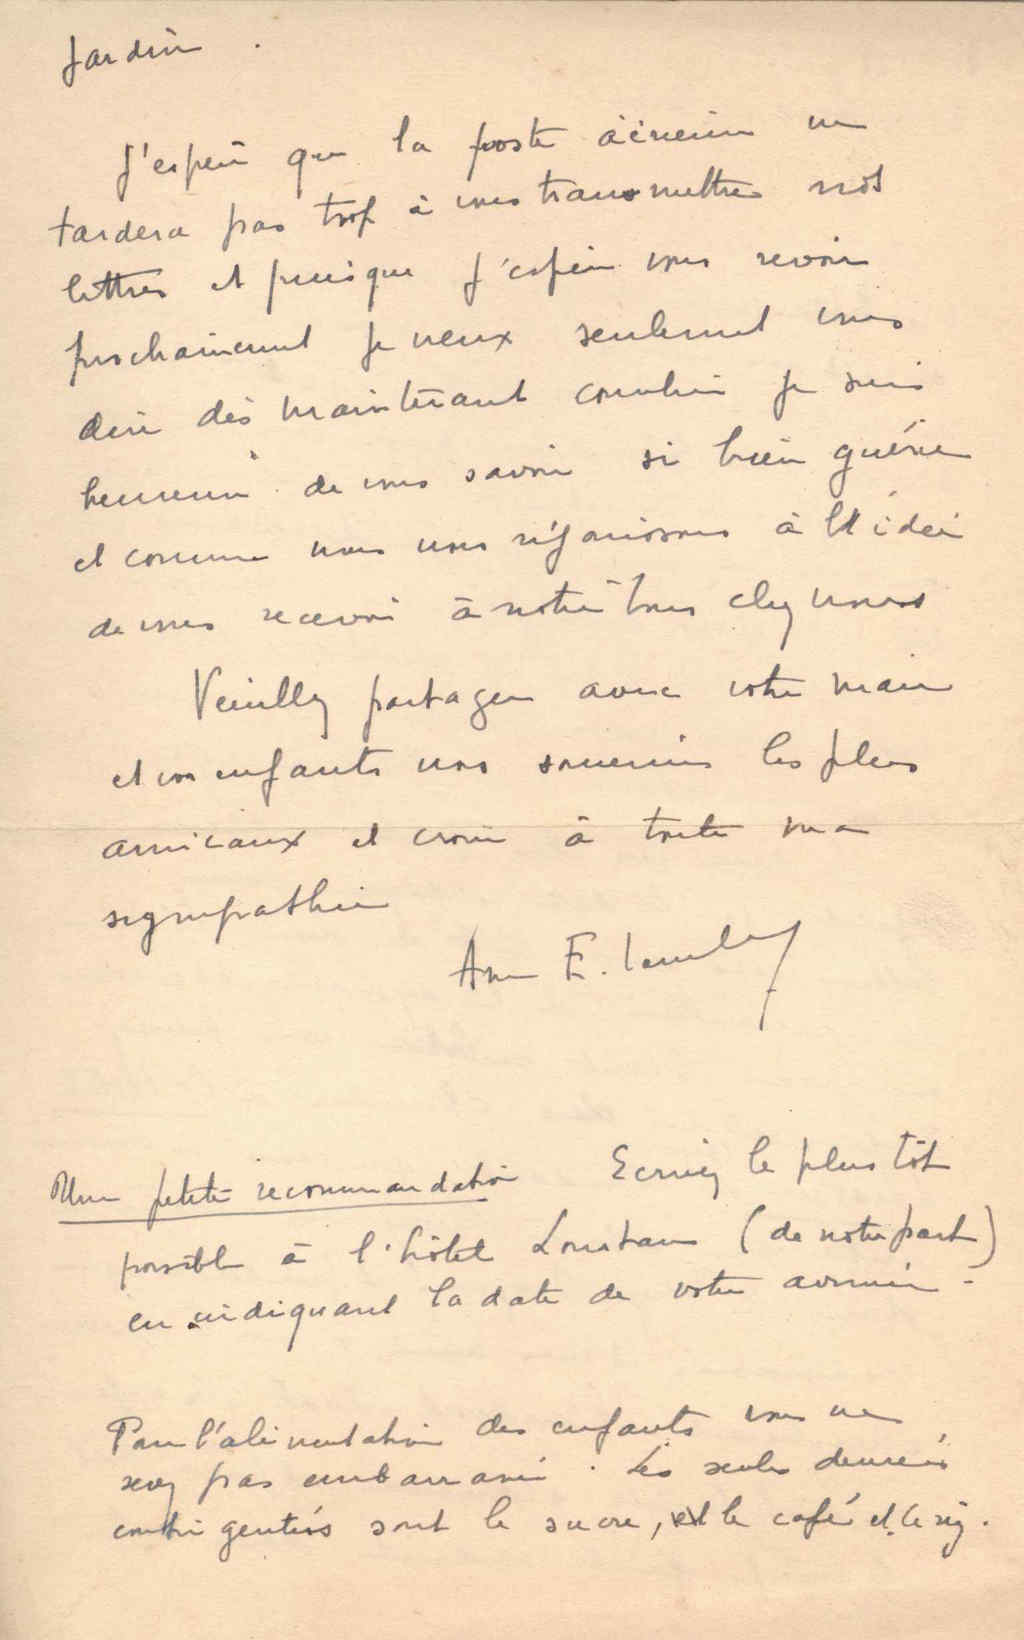 Jardin.
J'espère que la poste aérienne ne
tardera pas trop à vous transmettre nos
lettres et puisque j'espère vous revoir
prochainement je veux seulement vous
dire dès maintenant combien je suis
heureuse de vous savoir si bien guérie
et comme nous nous réjouissons à l'idée
de vous recevoir à notre tour chez nous
Veuillez partager avec votre mari
et vos enfants nos souvenirs les plus
amicaux et croire à toute ma
sympathie
E.
Une petite recommandation Ecrivez le plus tôt
possible à l'hôtel Loustau (de notre part)
en indiquant la date de votre arrivée -
Pour l'alimentation des enfants vous ne
serez pas embarrassée. Les seules denrées
contingentées sont le sucre, et le café et le riz.